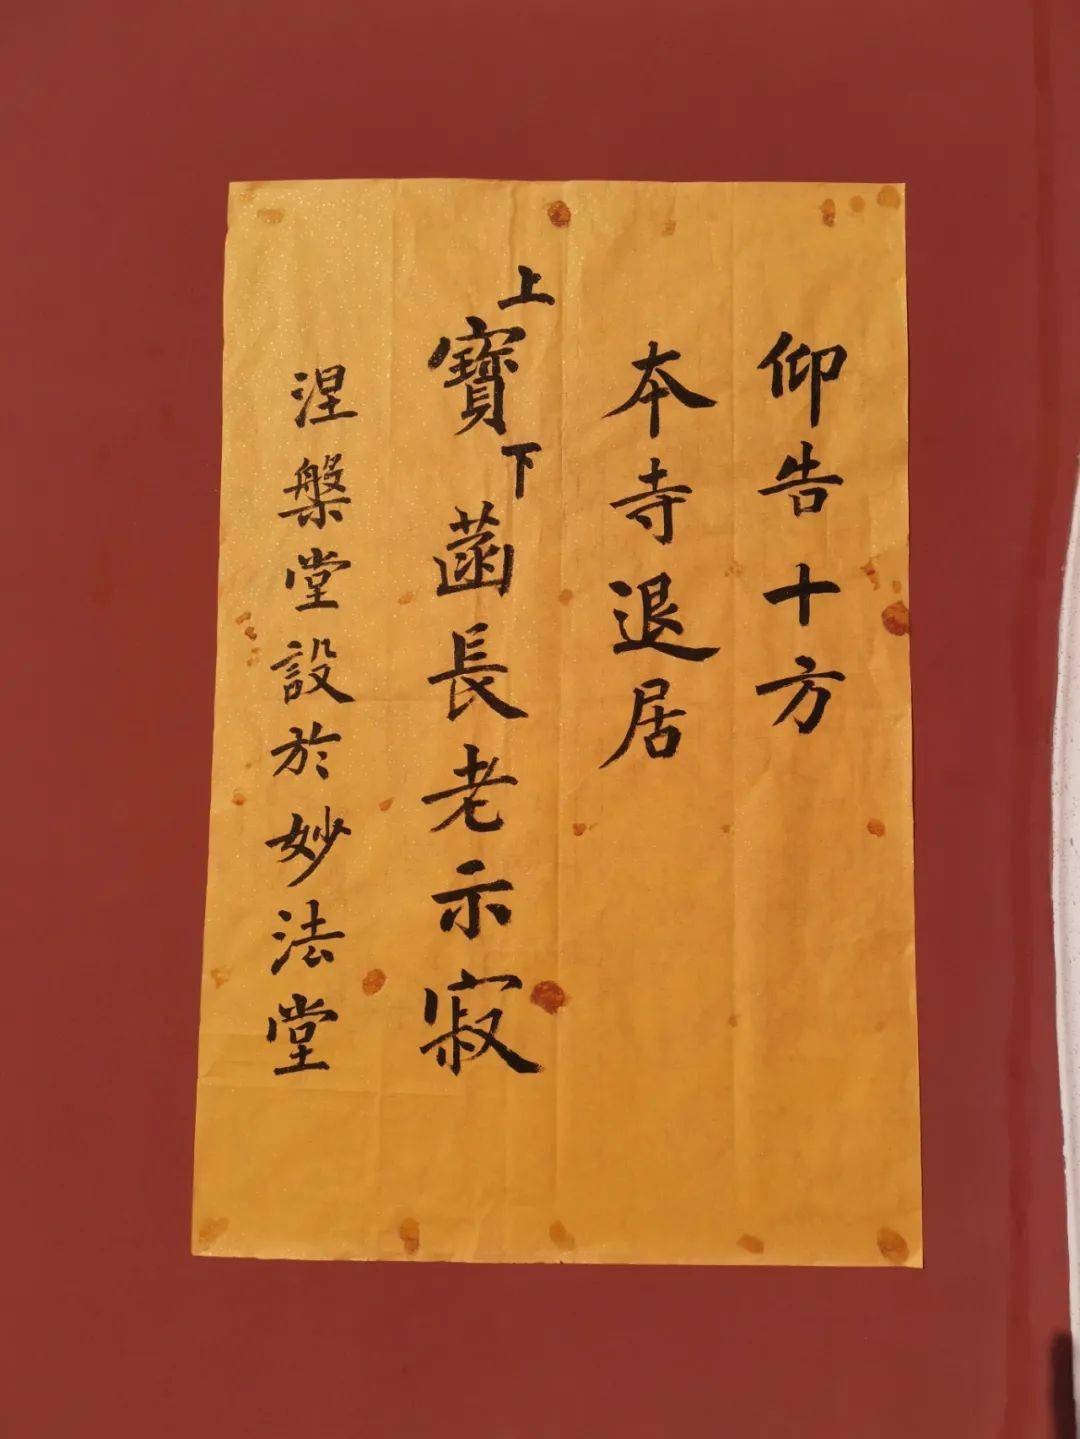 仰告十方
本寺退居
上寶下菡長老示寂
涅槃堂設於妙法堂